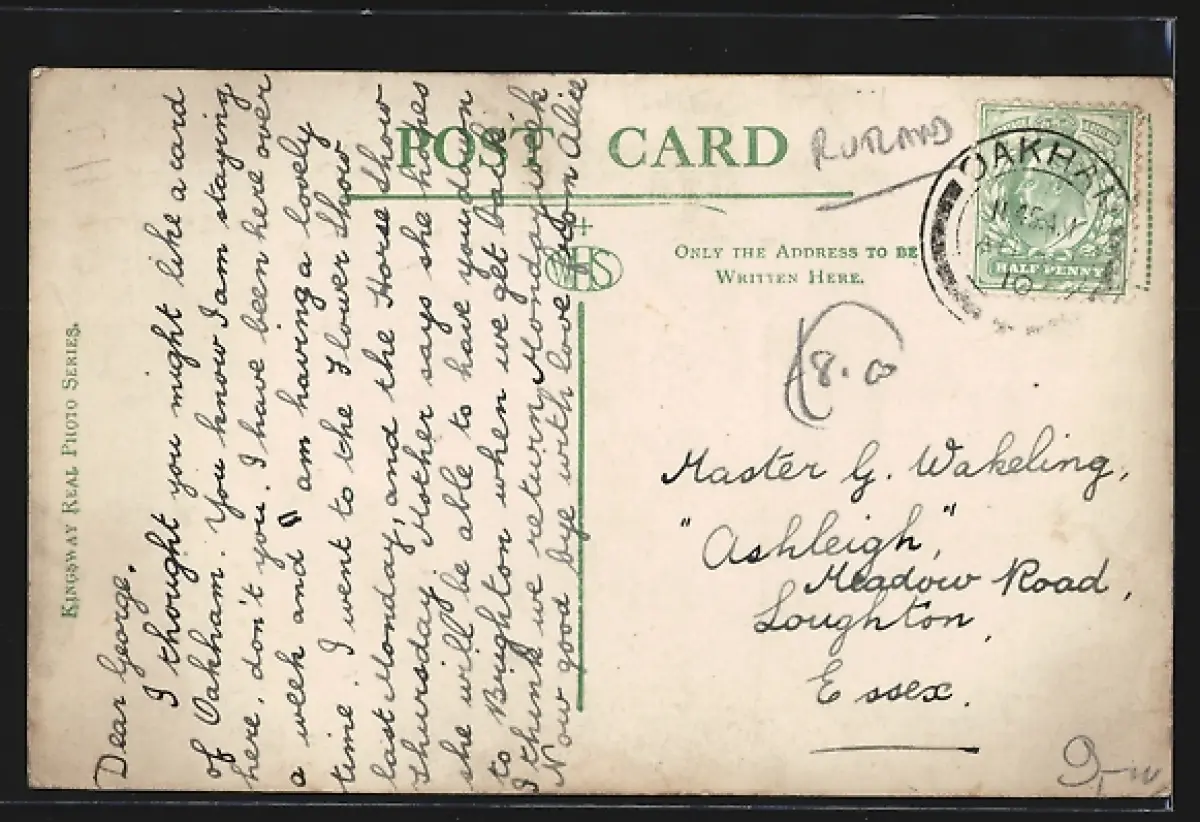 POST CARD
RUTLAND
OAKHAM
10
HALF PENNY
ONLY THE ADDRESS TO BE
WRITTEN HERE.
KINGSWAY REAL PHOTO SERIES.
Dear George,
I thought you might like a card
of Oakham. You know I am staying
here, don't you. I have been here over
a week and am having a lovely
time. I went to the Flower Show
last Monday, and the Horse Show
Thursday. Mother says she hopes
she will be able to have you down
to Brighton when we get back.
I think we return Monday week
Now good bye with love from Alice
Master G. Wakeling,
"Ashleigh",
Meadow Road,
Loughton,
Essex.